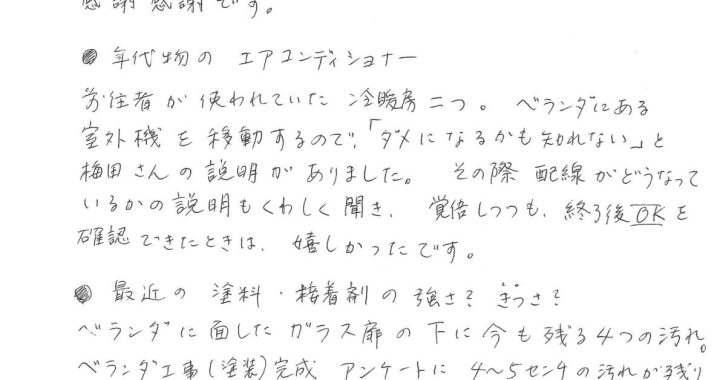 感謝感謝です。
● 年代物の エアコンディショナー
前住者が使われていた 冷暖房二つ。 ベランダにある
室外機を移動するので、「ダメになるかも知れない」と
梅田さんの説明がありました。 その際 配線がどうなって
いるかの説明もくわしく聞き、 覚悟しつつも、終了後OKを
確認できたときは、嬉しかったです。
● 最近の 塗料・接着剤の 強さ？ きつさ？
ベランダに面したガラス扉の下に今も残る4つの汚れ。
ベランダ工事(塗装)完成 アンケートに 4〜5センチの汚れが残り